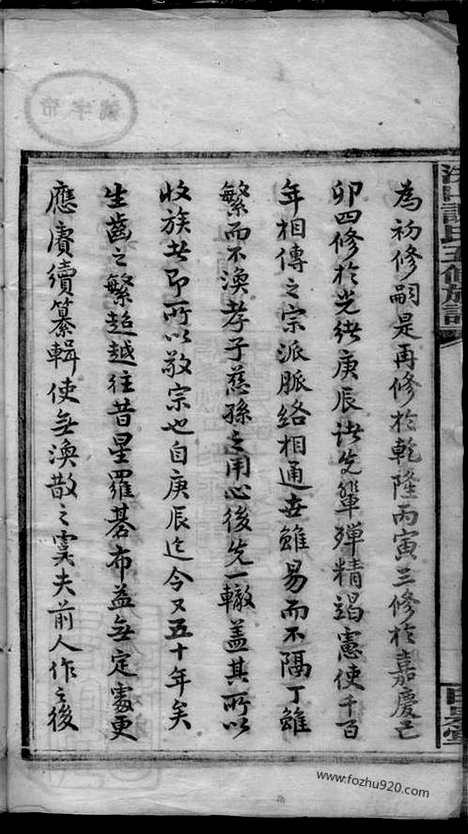 為初修嗣是再修於乾隆丙寅三修於嘉慶己
卯四修於光緒庚辰諸先輩殫精竭慮使千百
年相傳之宗派脈絡相通世雖易而不隔丁雖
繁而不渙孝子慈孫之用心後先一轍盖其所以
收族者即所以敬宗也自庚辰迄今又五十年矣
生齒之繁超越往昔星羅碁布益無定處更
應賡續纂輯使無渙散之虞夫前人作之後
氏五修族譜
www.fozhu920.com